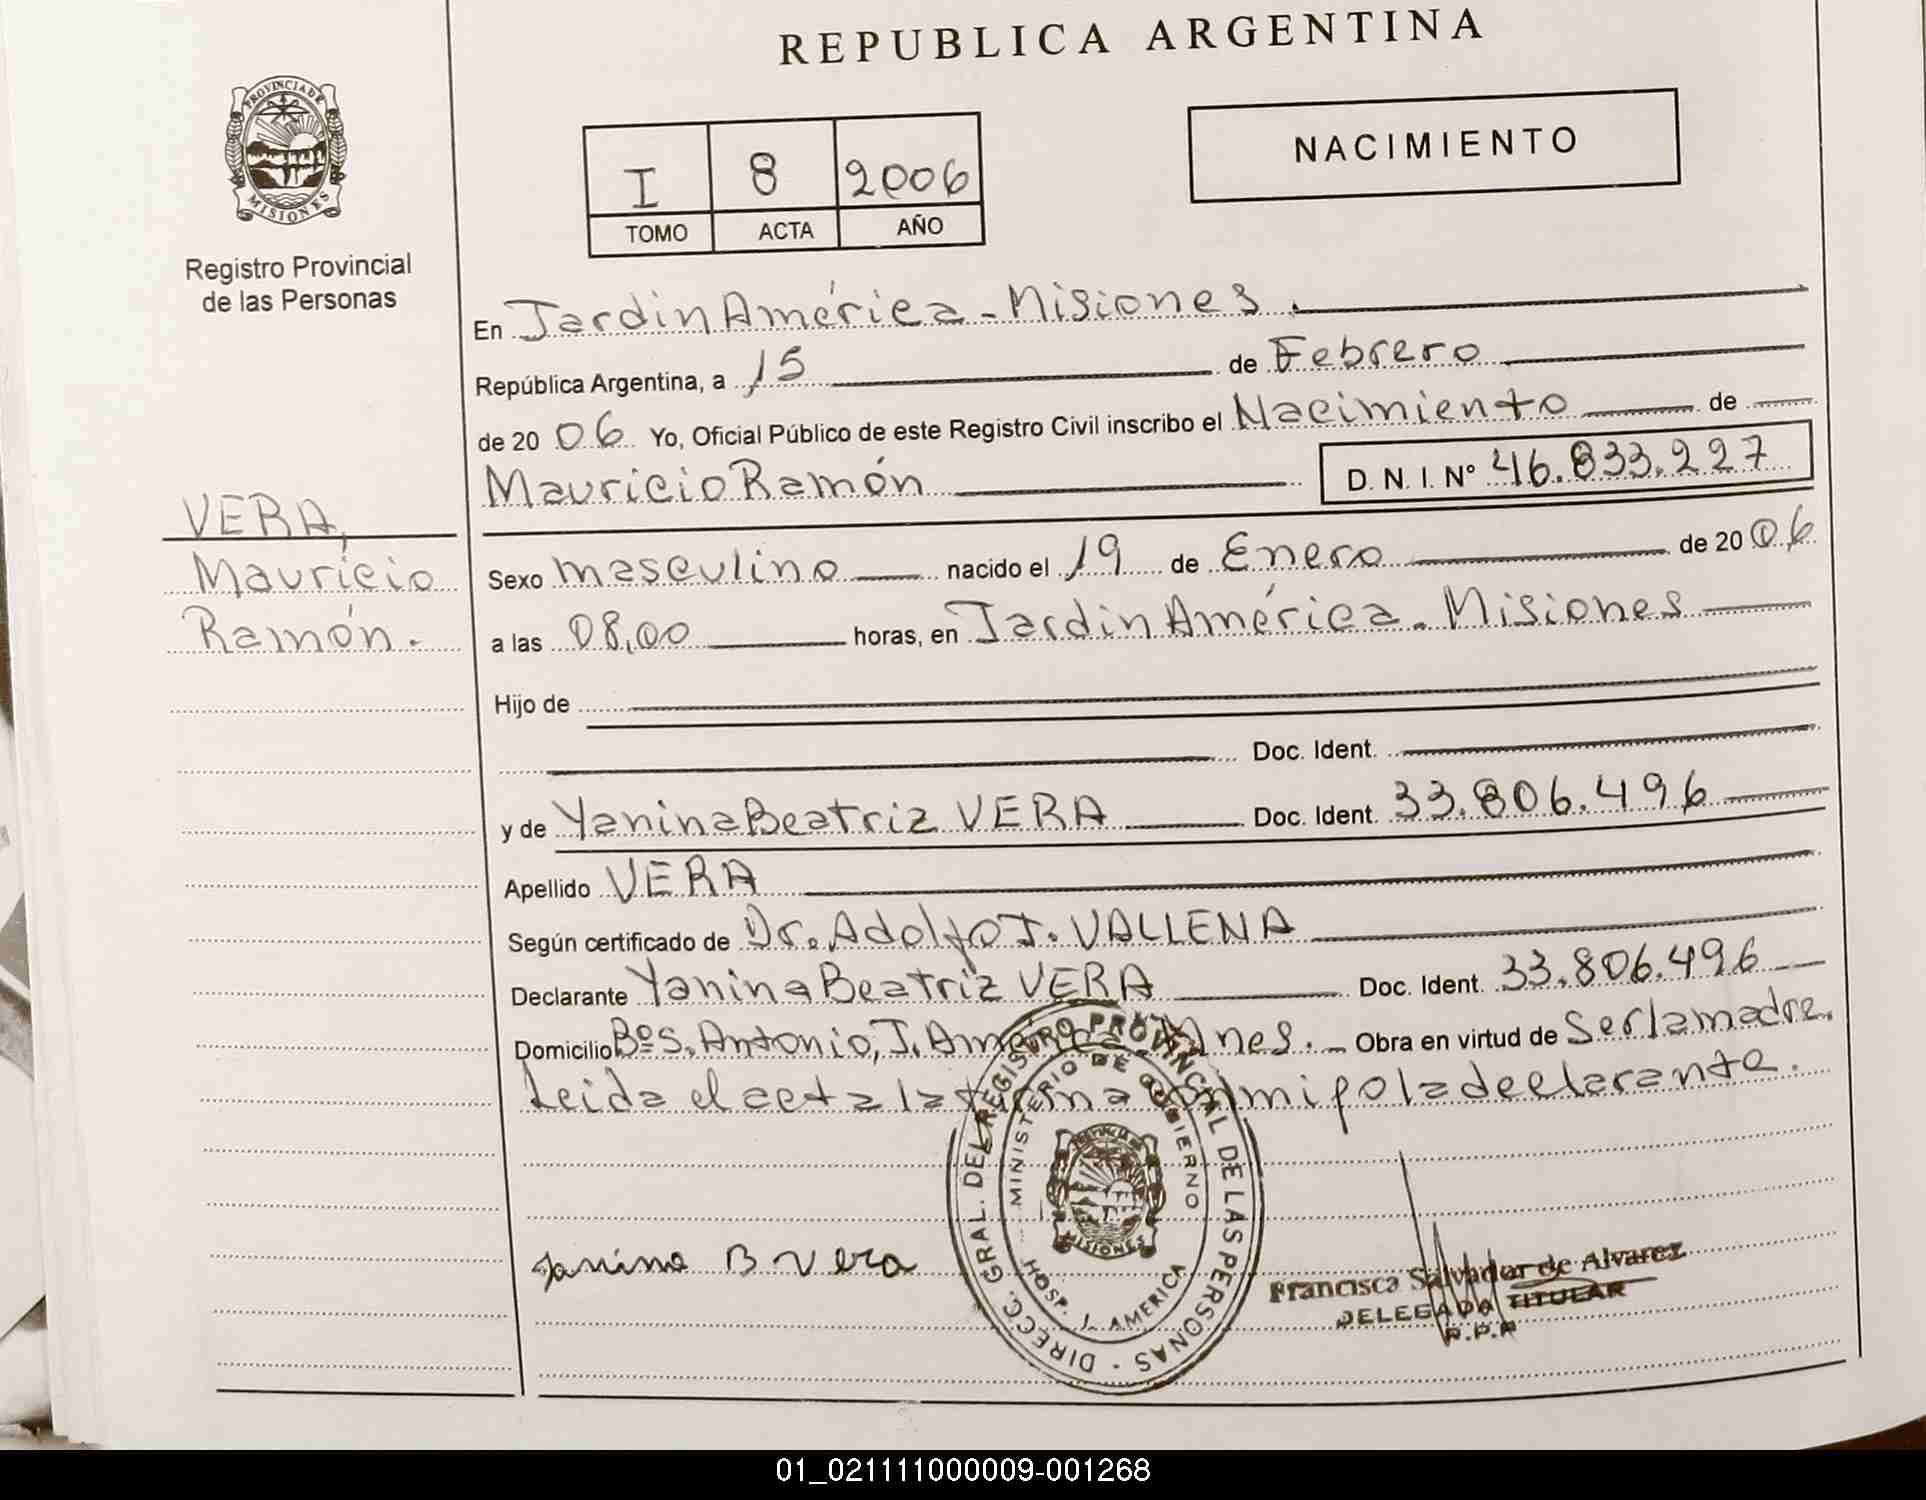 REPUBLICA ARGENTINA
PROVINCIA DE
MISIONES
Registro Provincial
de las Personas
I 8 2006
TOMO ACTA AÑO
NACIMIENTO
En Jardin América - Misiones.
República Argentina, a 15 de Febrero
de 2006 Yo, Oficial Público de este Registro Civil inscribo el Nacimiento de
Mauricio Ramón D. N. I. Nº 46.833.227
VERA,
Mauricio
Ramón.
Sexo masculino nacido el 19 de Enero de 2006
a las 08,00 horas, en Jardin América - Misiones
Hijo de
Doc. Ident.
y de Yanina Beatriz VERA Doc. Ident. 33.806.496
Apellido VERA
Según certificado de Dr. Adolfo J. VALLENA
Declarante Yanina Beatriz VERA Doc. Ident. 33.806.496
Domicilio Bº S. Antonio, J. América Mnes. - Obra en virtud de ser la madre.
Leida el acta la firma conmigo la declarante.
DIRECC. GRAL. DEL REGISTRO PROVINCIAL DE LAS PERSONAS
MINISTERIO DE GOBIERNO
MISIONES
HOSP. J. AMERICA
Yanina B Vera
Francisca Salvador de Alvarez
DELEGADA TITULAR
R.P.P
01_021111000009-001268